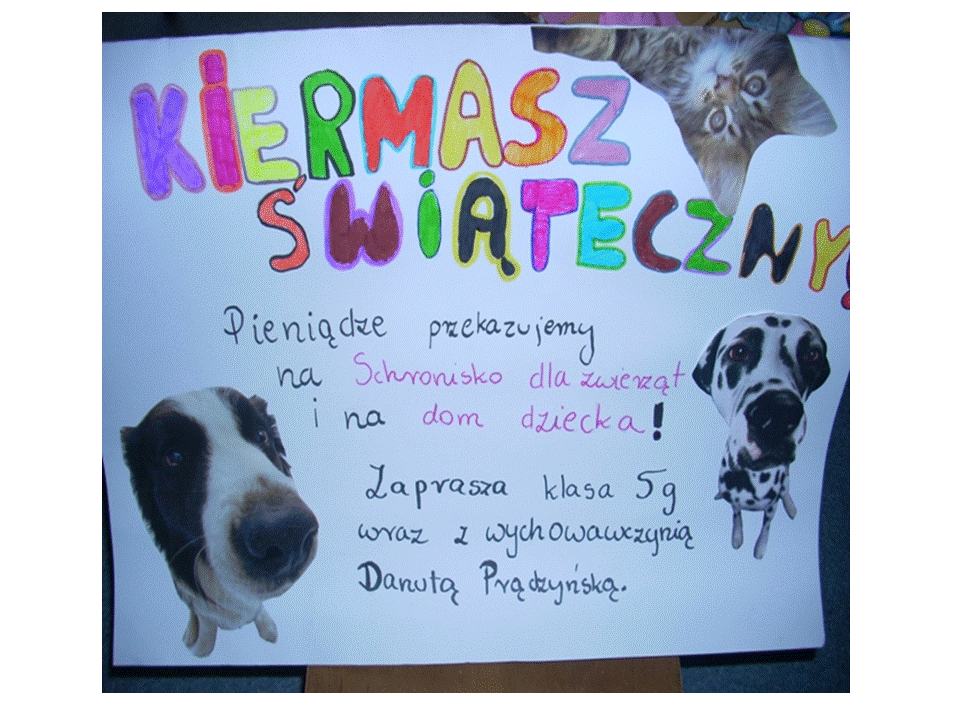 KiERMASZ
ŚWiĄTECZNY!
Pieniądze przekazujemy
na Schronisko dla zwierząt
i na dom dziecka!
Zaprasza klasa 5g
wraz z wychowawczynią
Danutą Prądzyńską.